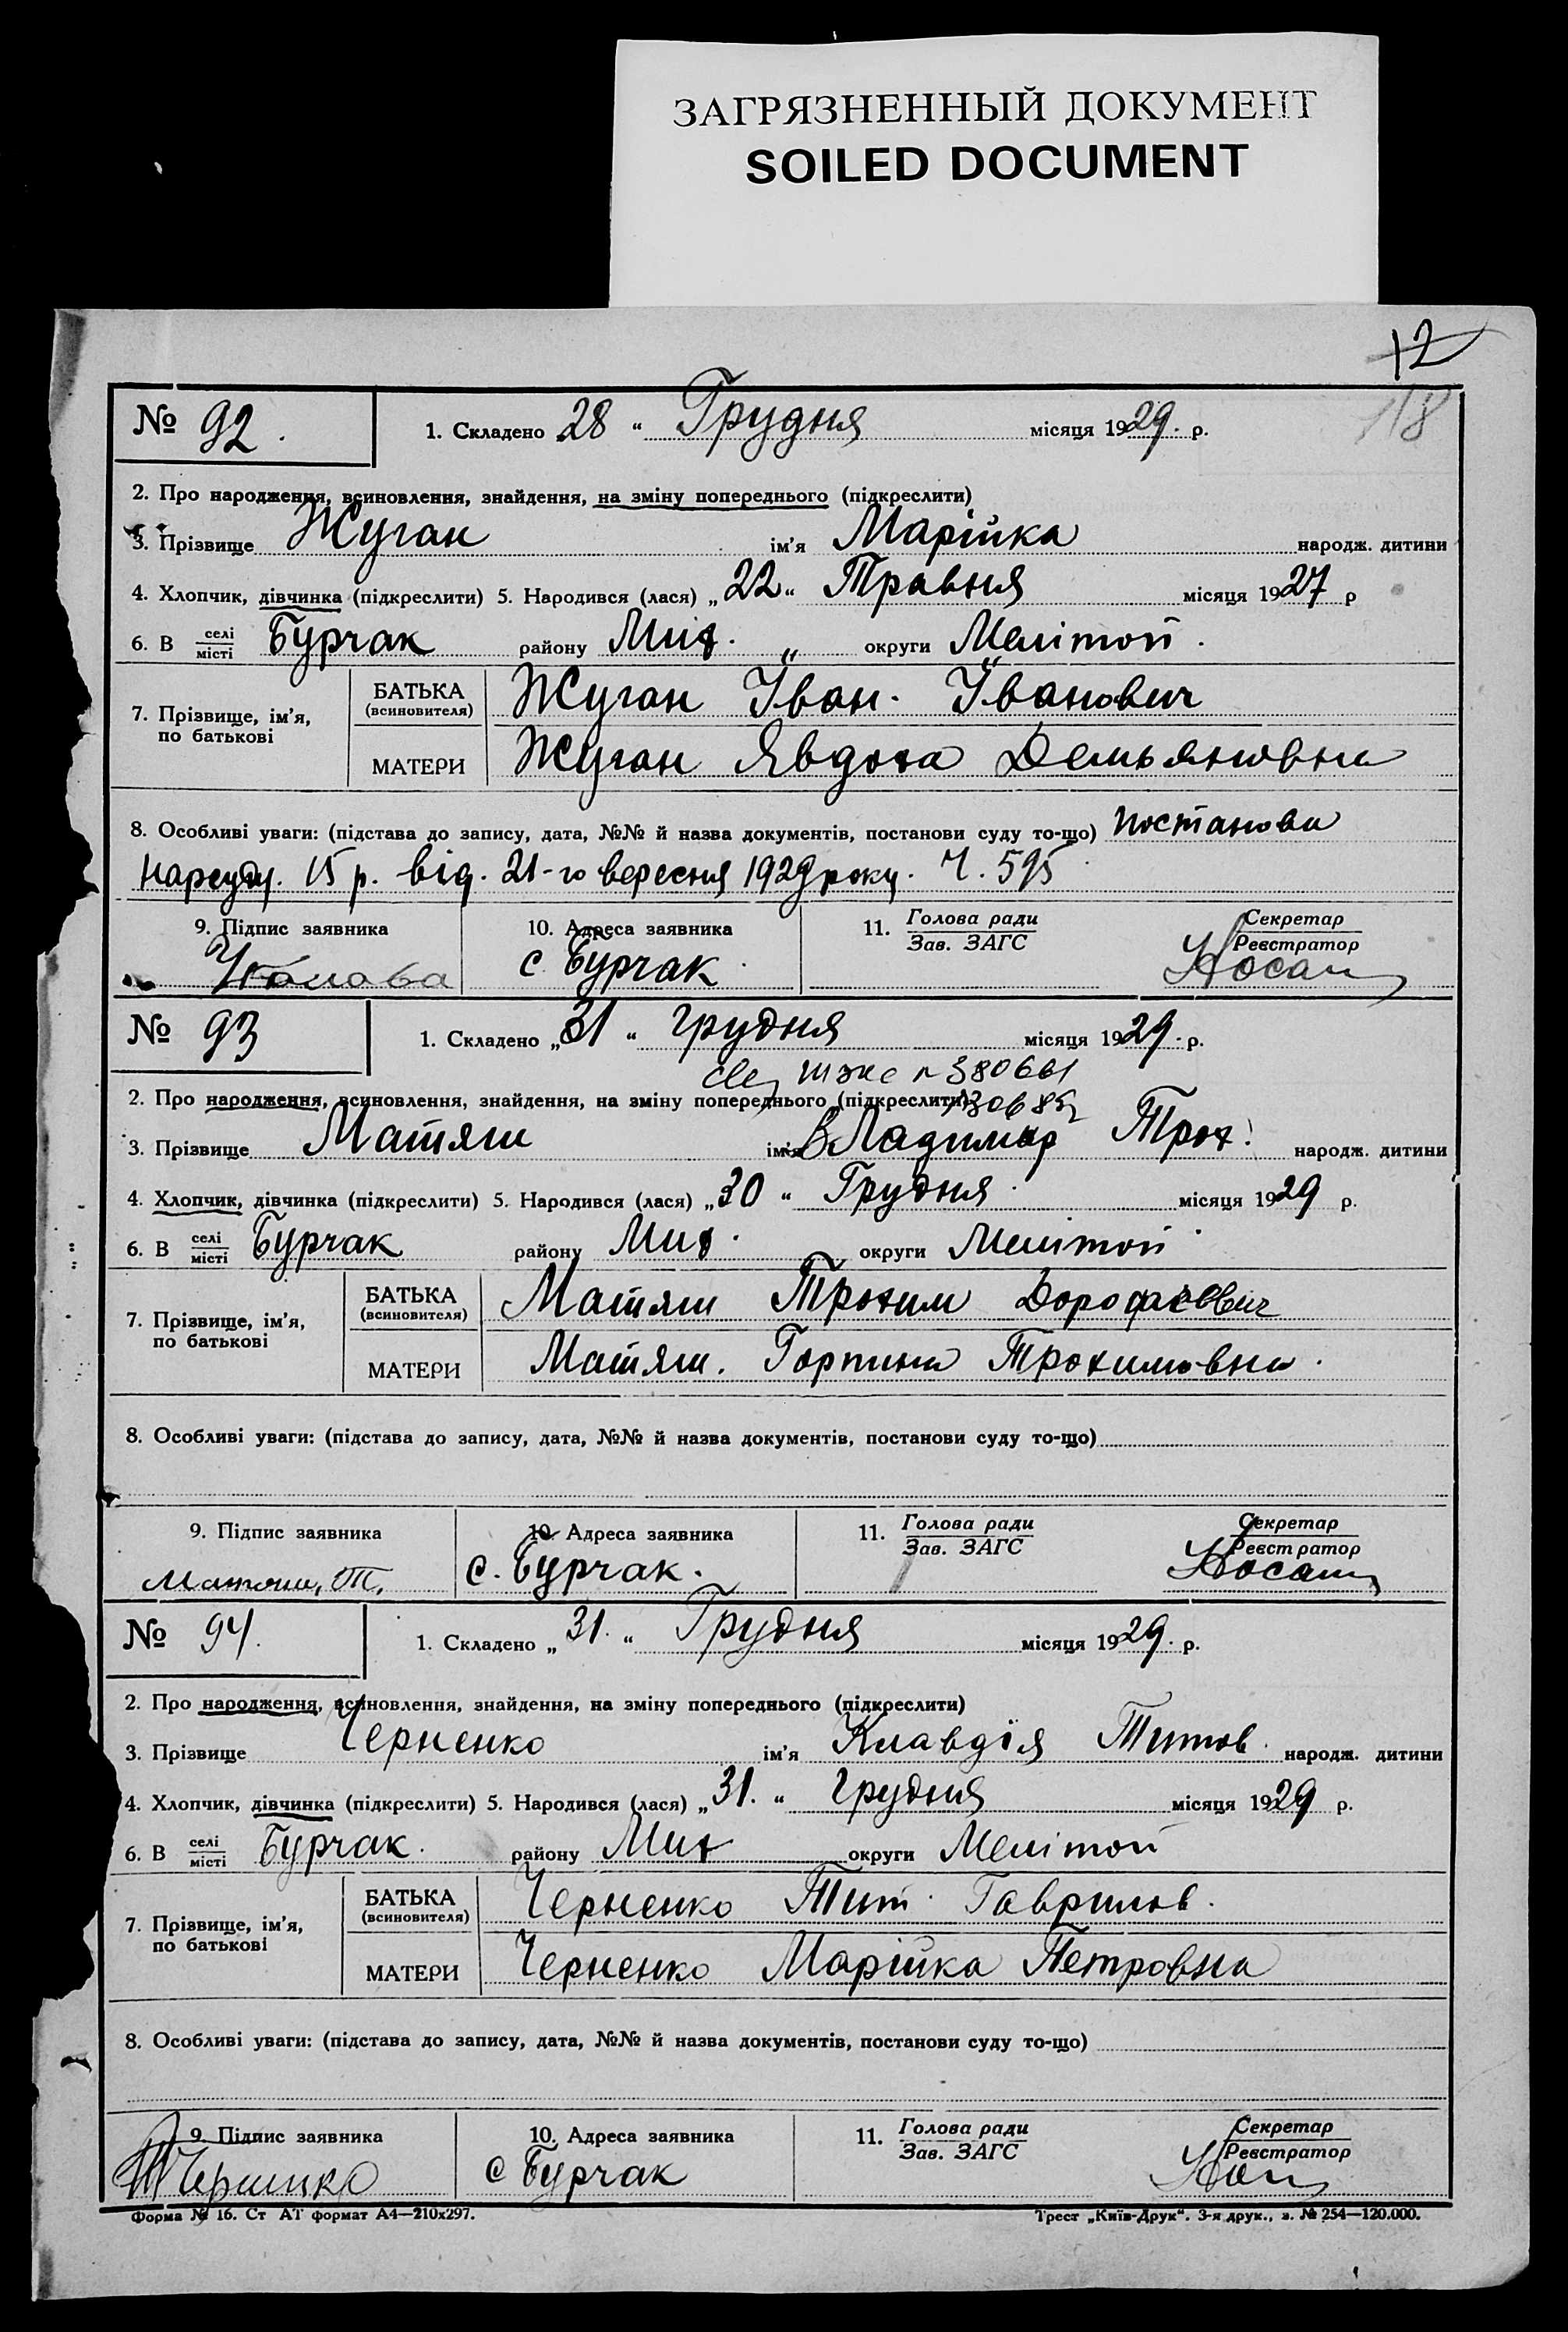 ЗАГРЯЗНЕННЫЙ ДОКУМЕНТ
SOILED DOCUMENT
12
118
№ 92. 1. Складено 28 " Грудня місяця 1929. р.
2. Про народження, всиновлення, знайдення, на зміну попереднього (підкреслити)
3. Прізвище Жуган ім'я Марійка народж. дитини
4. Хлопчик, дівчинка (підкреслити) 5. Народився (лася) „22" Травня місяця 1927 р
6. В селі/місті Бурчак району Мих. округи Мелітоп.
7. Прізвище, ім'я, по батькові
БАТЬКА (всиновителя) Жуган Іван Іванович
МАТЕРИ Жуган Явдоха Демьяновна
8. Особливі уваги: (підстава до запису, дата, №№ й назва документів, постанови суду то-що) постанова
Нарсуду. 15 р. від. 21-го вересня 1929 року. Ч. 595
9. Підпис заявника 10. Адреса заявника 11. Голова ради/Зав. ЗАГС Секретар/Реєстратор
с Бурчак Носач
№ 93 1. Складено „31" грудня місяця 1929. р.
380661
2. Про народження, всиновлення, знайдення, на зміну попереднього (підкреслити)
3. Прізвище Матяш ім'я Владимир Трох. народж. дитини
4. Хлопчик, дівчинка (підкреслити) 5. Народився (лася) „30" Грудня місяця 1929 р.
6. В селі/місті Бурчак району Мих. округи Мелітоп
7. Прізвище, ім'я, по батькові
БАТЬКА (всиновителя) Матяш Трохим Дорофаєввич
МАТЕРИ Матяш. Горпина Трохимовна.
8. Особливі уваги: (підстава до запису, дата, №№ й назва документів, постанови суду то-що)
9. Підпис заявника 10. Адреса заявника 11. Голова ради/Зав. ЗАГС Секретар/Реєстратор
Матяш, Т. с. Бурчак. Носач
№ 94. 1. Складено „31." Грудня місяця 1929. р.
2. Про народження, всиновлення, знайдення, на зміну попереднього (підкреслити)
3. Прізвище Черненко ім'я Клавдія Титов. народж. дитини
4. Хлопчик, дівчинка (підкреслити) 5. Народився (лася) „31." грудня місяця 1929 р.
6. В селі/місті Бурчак. району Мих округи Мелітоп
7. Прізвище, ім'я, по батькові
БАТЬКА (всиновителя) Черненко Тит Гаврилов.
МАТЕРИ Черненко Марійка Петровна
8. Особливі уваги: (підстава до запису, дата, №№ й назва документів, постанови суду то-що)
9. Підпис заявника 10. Адреса заявника 11. Голова ради/Зав. ЗАГС Секретар/Реєстратор
с Бурчак
Форма № 16. Ст АТ формат А4—210х297. Трест „Київ-Друк". 3-я друк., з. № 254—120.000.